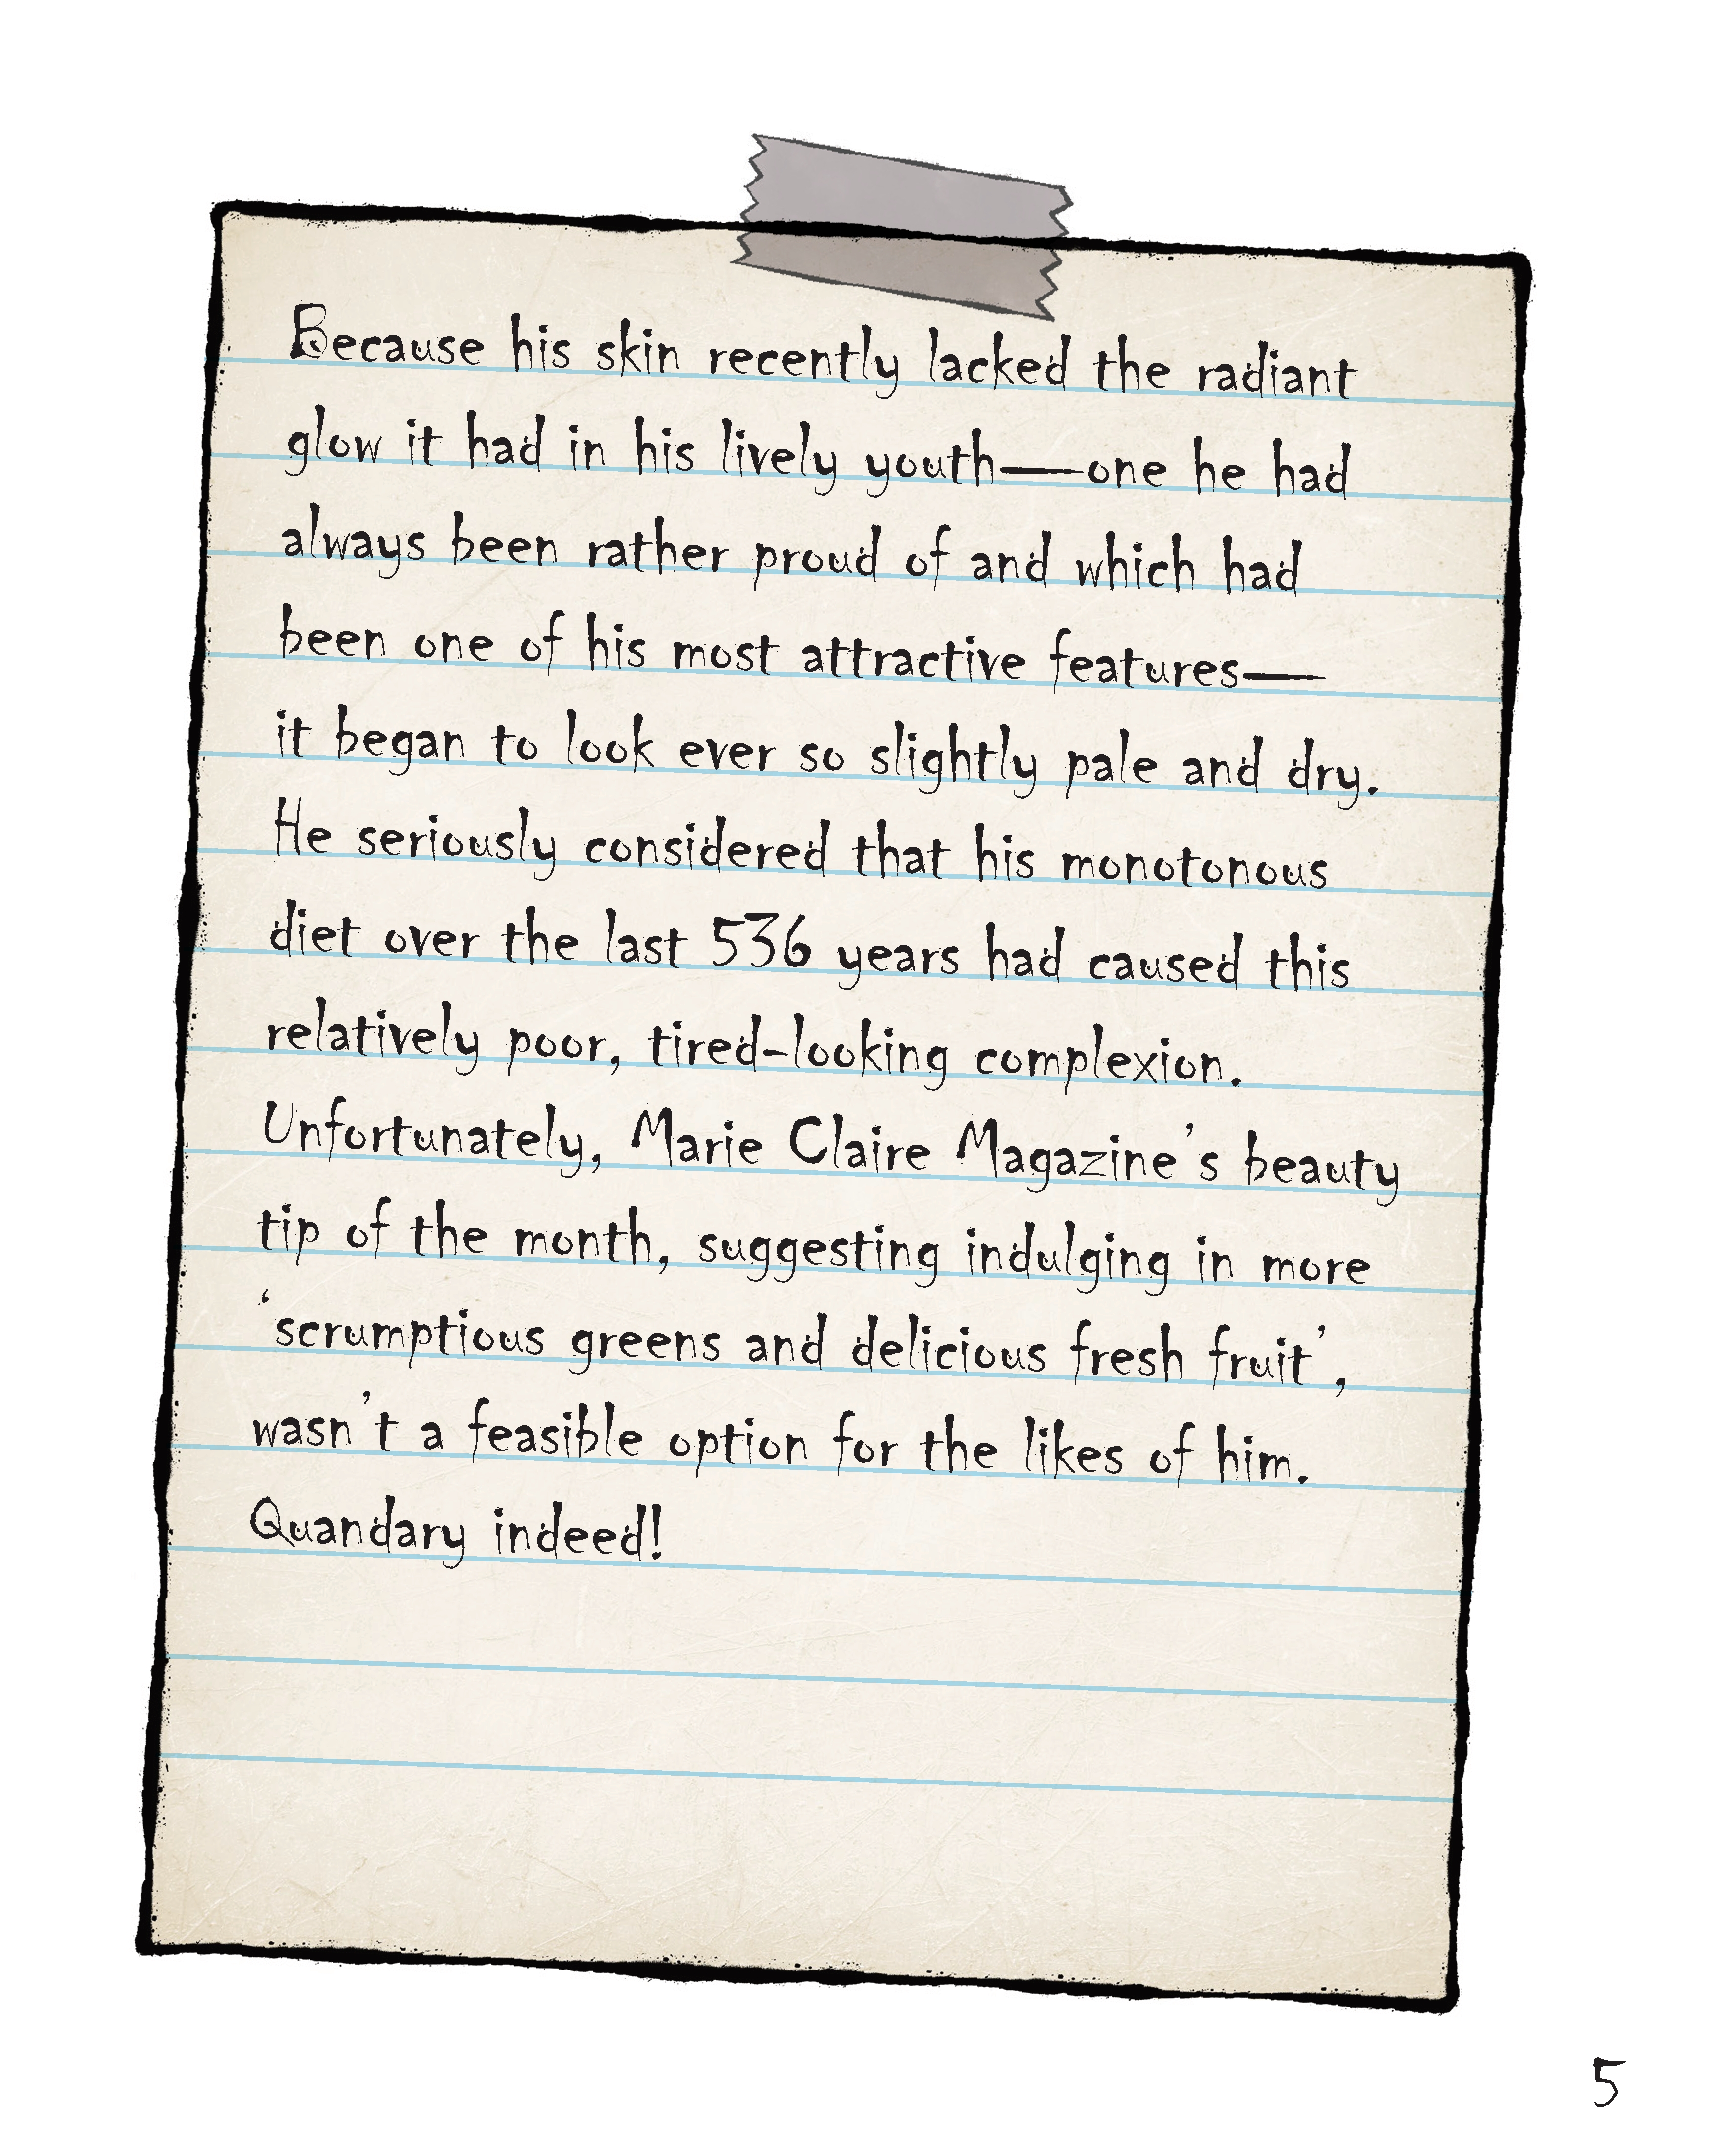 Because his skin recently lacked the radiant
glow it had in his lively youth—one he had
always been rather proud of and which had
been one of his most attractive features—
it began to look ever so slightly pale and dry.
He seriously considered that his monotonous
diet over the last 536 years had caused this
relatively poor, tired-looking complexion.
Unfortunately, Marie Claire Magazine's beauty
tip of the month, suggesting indulging in more
‘scrumptious greens and delicious fresh fruit’,
wasn't a feasible option for the likes of him.
Quandary indeed!
5